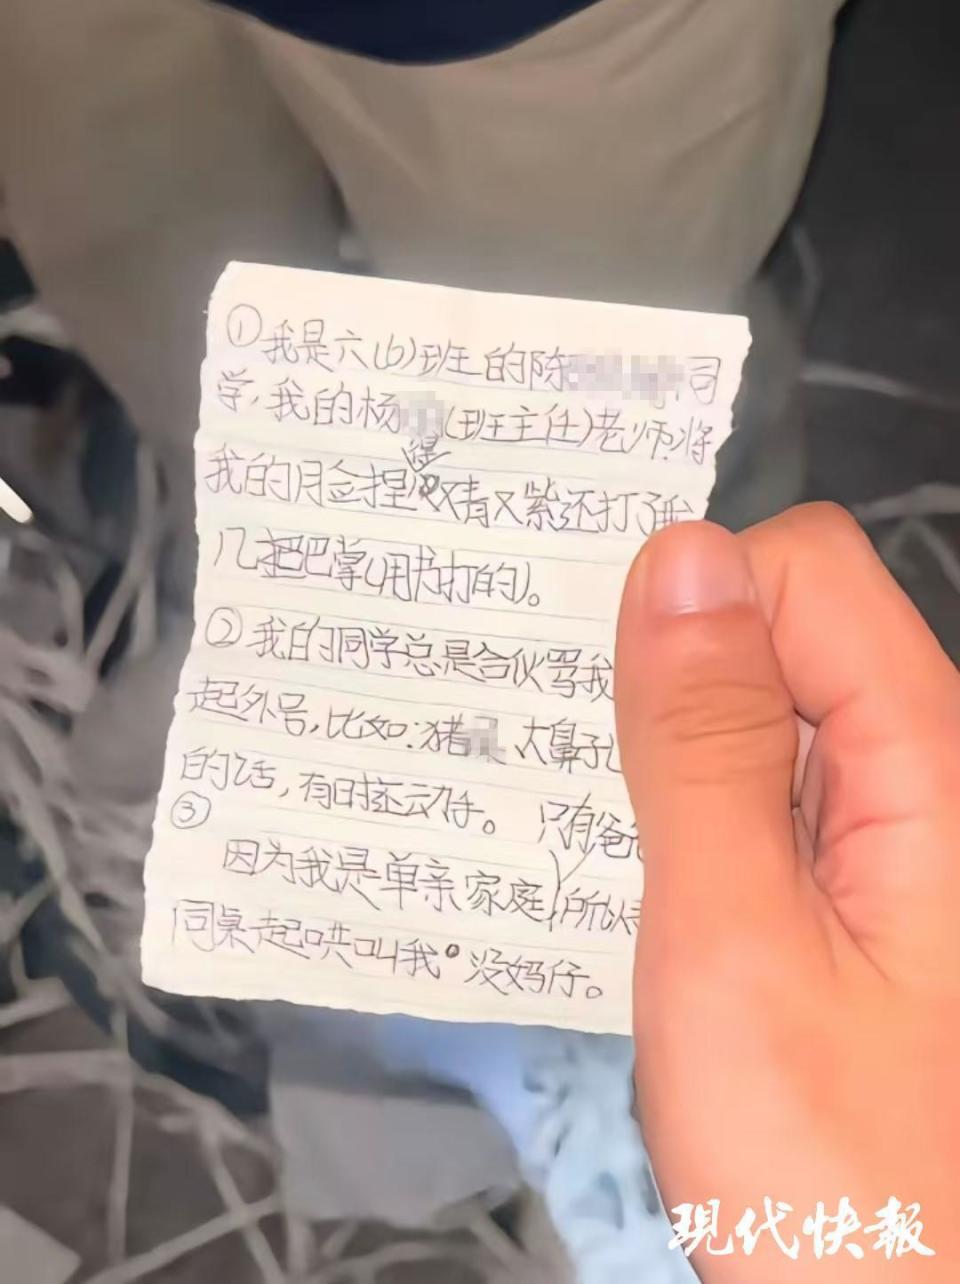 ①我是六(6)班的陈 同
学,我的杨 (班主任)老师.将
得
我的脸捏 又青又紫还打了我
几把巴掌(用书打的)。
②我的同学总是合伙骂我
起外号,比如:猪 、大鼻孔
的话,有时还动手。
只有爸爸
③
因为我是单亲家庭,所以
同桌起哄叫我 没妈仔。
现代快報